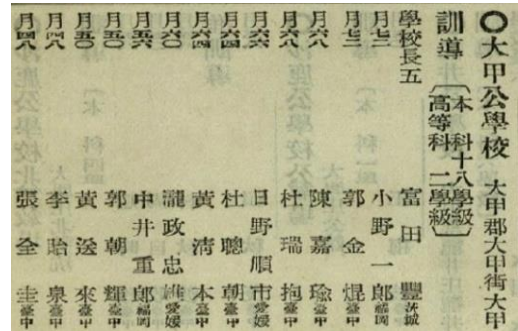 〇大甲公學校 大甲郡大甲街大甲
訓導〔本科十八學級 高等科二學級〕
學校長五 富田豐 茨城
月七三 小野一郎 福岡
月七三 郭金焜 臺中
月六八 陳嘉瑜 臺中
月六八 杜瑞抱 臺中
月六六 日野順市 愛媛
月六四 杜聰朝 臺中
月六四 黃淸本 臺中
月六〇 瀧政忠雄 愛媛
月五六 中井重郎 福岡
月五〇 郭朝輝 臺中
月五〇 黃送來 臺中
月四八 李貽泉 臺中
月四八 張全圭 臺中